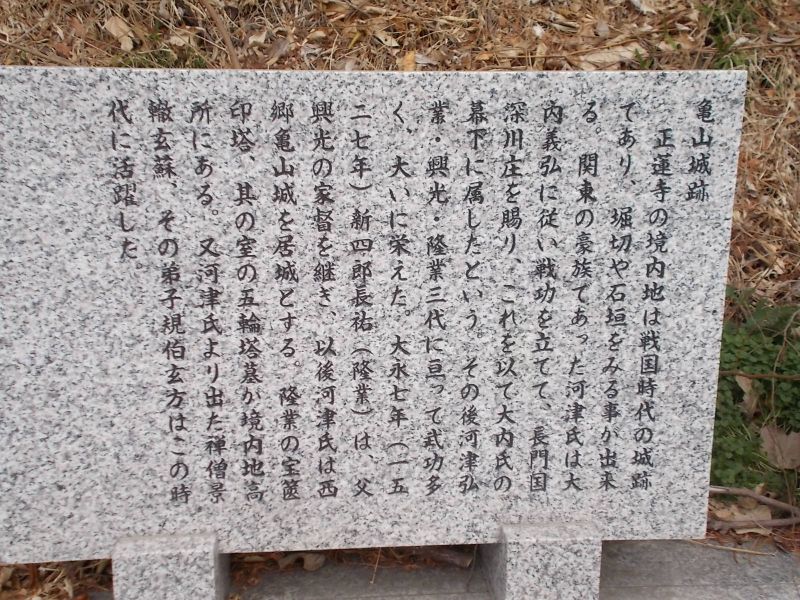 亀山城跡
正運寺の境内地は戦国時代の城跡
であり、堀切や石垣をみる事が出来
る。関東の豪族であった河津氏は大
内義弘に従い戦功を立てて、長門国
深川庄を賜り、これを以て大内氏の
幕下に属したという。その後河津弘
業・興光・隆業三代に亘って武功多
く、大いに栄えた。大永七年(一五
二七年)新四郎長祐(隆業)は、父
興光の家督を継ぎ、以後河津氏は西
郷亀山城を居城とする。隆業の宝篋
印塔、其の室の五輪塔墓が境内地高
所にある。又河津氏より出た禅僧景
轍玄蘇、その弟子規伯玄方はこの時
代に活躍した。